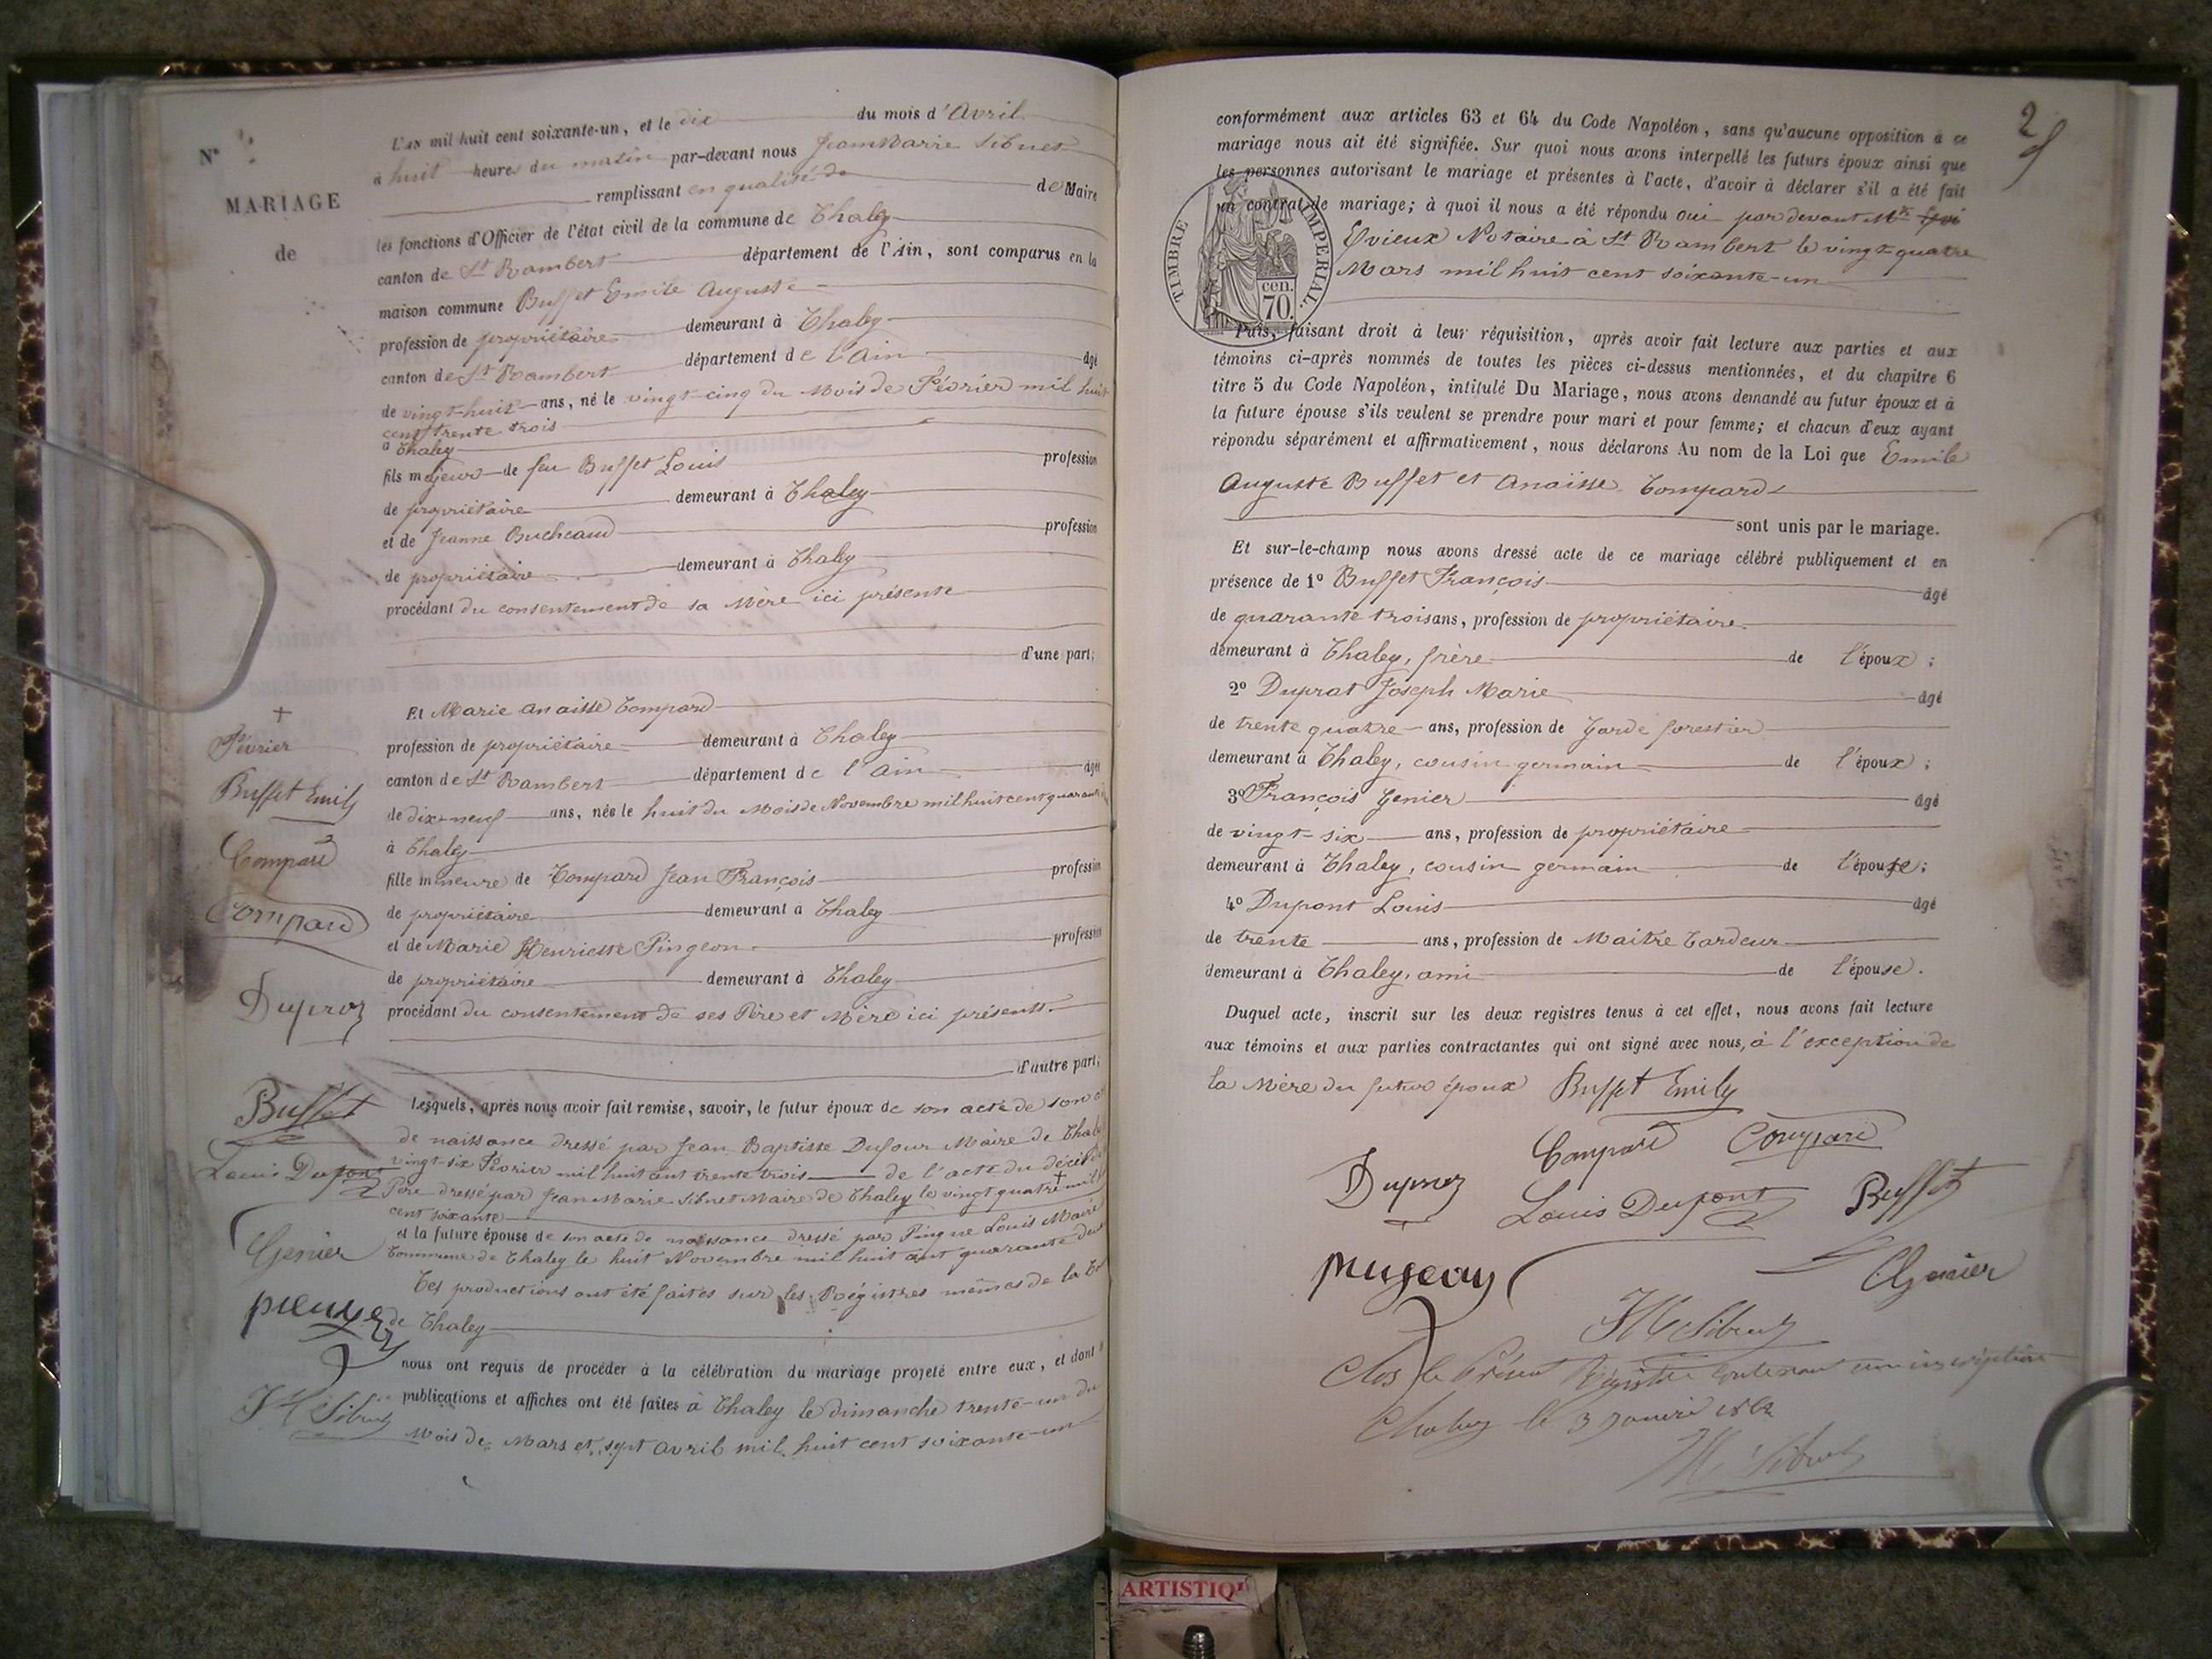 N°
MARIAGE
de
L'AN mil huit cent soixante-un, et le dix du mois d'Avril
à huit heures du matin par-devant nous Jean Marie Sibuet
remplissant en qualité de de Maire
les fonctions d'Officier de l'état civil de la commune de Chaley
canton de St Rambert département de l'Ain, sont comparus en la
maison commune Buffet Emile Auguste
profession de propriétaire demeurant à Chaley
canton de St Rambert département de l'Ain âgé
de vingt-huit ans, né le vingt-cinq du Mois de Février mil huit
cent trente trois
à Chaley
fils majeur de feu Buffet Louis profession
de propriétaire demeurant à Chaley
et de Jeanne Bucheaud profession
de propriétaire demeurant à Chaley
procédant du consentement de sa Mère ici présente
d'une part;
Et Marie Anaisse Compard
profession de propriétaire demeurant à Chaley
canton de St Rambert département de l'Ain âgée
de dix-neuf ans, née le huit du Mois de Novembre mil huit cent quarante
à Chaley
fille mineure de Compard Jean François profession
de propriétaire demeurant à Chaley
et de Marie Henriette Pingeon profession
de propriétaire demeurant à Chaley
procédant du consentement de ses Père et Mère ici présents
d'autre part;
Lesquels, après nous avoir fait remise, savoir, le futur époux de son acte de son
de naissance dressé par Jean Baptiste Dufour Maire de Chaley
vingt-six Février mil huit cent trente trois de l'acte du décès
Père dressé par Jean Marie Sibuet Maire de Chaley le vingt quatre + mil
cent soixante
et la future épouse de son acte de naissance dressé par Pingue Louis Maire
Commune de Chaley le huit Novembre mil huit cent quarante deux
Ces productions ont été faites sur les Régistres mêmes de la
de Chaley
nous ont requis de procéder à la célébration du mariage projeté entre eux, et dont
publications et affiches ont été faites à Chaley le dimanche trente-un du
Mois de Mars et sept Avril mil huit cent soixante-un
+
Février
Buffet Emily
Compard
Compard
Duproz
Buffet
Louis Dupont
Genier
JM Sibuet
2
conformément aux articles 63 et 64 du Code Napoléon, sans qu'aucune opposition à ce
mariage nous ait été signifiée. Sur quoi nous avons interpellé les futurs époux ainsi que
les personnes autorisant le mariage et présentes à l'acte, d'avoir à déclarer s'il a été fait
un contrat de mariage; à quoi il nous a été répondu oui par devant Mre
Evieux Notaire à St Rambert le vingt-quatre
Mars mil huit cent soixante-un
TIMBRE IMPERIAL.
cen.
70.
Puis, faisant droit à leur réquisition, après avoir fait lecture aux parties et aux
témoins ci-après nommés de toutes les pièces ci-dessus mentionnées, et du chapitre 6
titre 5 du Code Napoléon, intitulé Du Mariage, nous avons demandé au futur époux et à
la future épouse s'ils veulent se prendre pour mari et pour femme; et chacun d'eux ayant
répondu séparément et affirmativement, nous déclarons Au nom de la Loi que Emile
Auguste Buffet et Anaisse Compard
sont unis par le mariage.
Et sur-le-champ nous avons dressé acte de ce mariage célébré publiquement et en
présence de 1° Buffet François âgé
de quarante trois ans, profession de propriétaire
demeurant à Chaley, frère de l'époux;
2° Duprat Joseph Marie âgé
de trente quatre ans, profession de Garde forestier
demeurant à Chaley, cousin germain de l'époux;
3° François Genier âgé
de vingt-six ans, profession de propriétaire
demeurant à Chaley, cousin germain de l'épouse;
4° Dupont Louis âgé
de trente ans, profession de Maitre Cardeur
demeurant à Chaley, ami de l'épouse.
Duquel acte, inscrit sur les deux registres tenus à cet effet, nous avons fait lecture
aux témoins et aux parties contractantes qui ont signé avec nous, à l'exception de
la Mère du futur époux Buffet Emily
Compard Compard
Duproz Louis Dupont Buffet
Genier
JM Sibuet
Clos le Présent Régistre contenant une inscription
Chaley le 3 Janvier 1862
JM Sibuet
ARTISTIQ